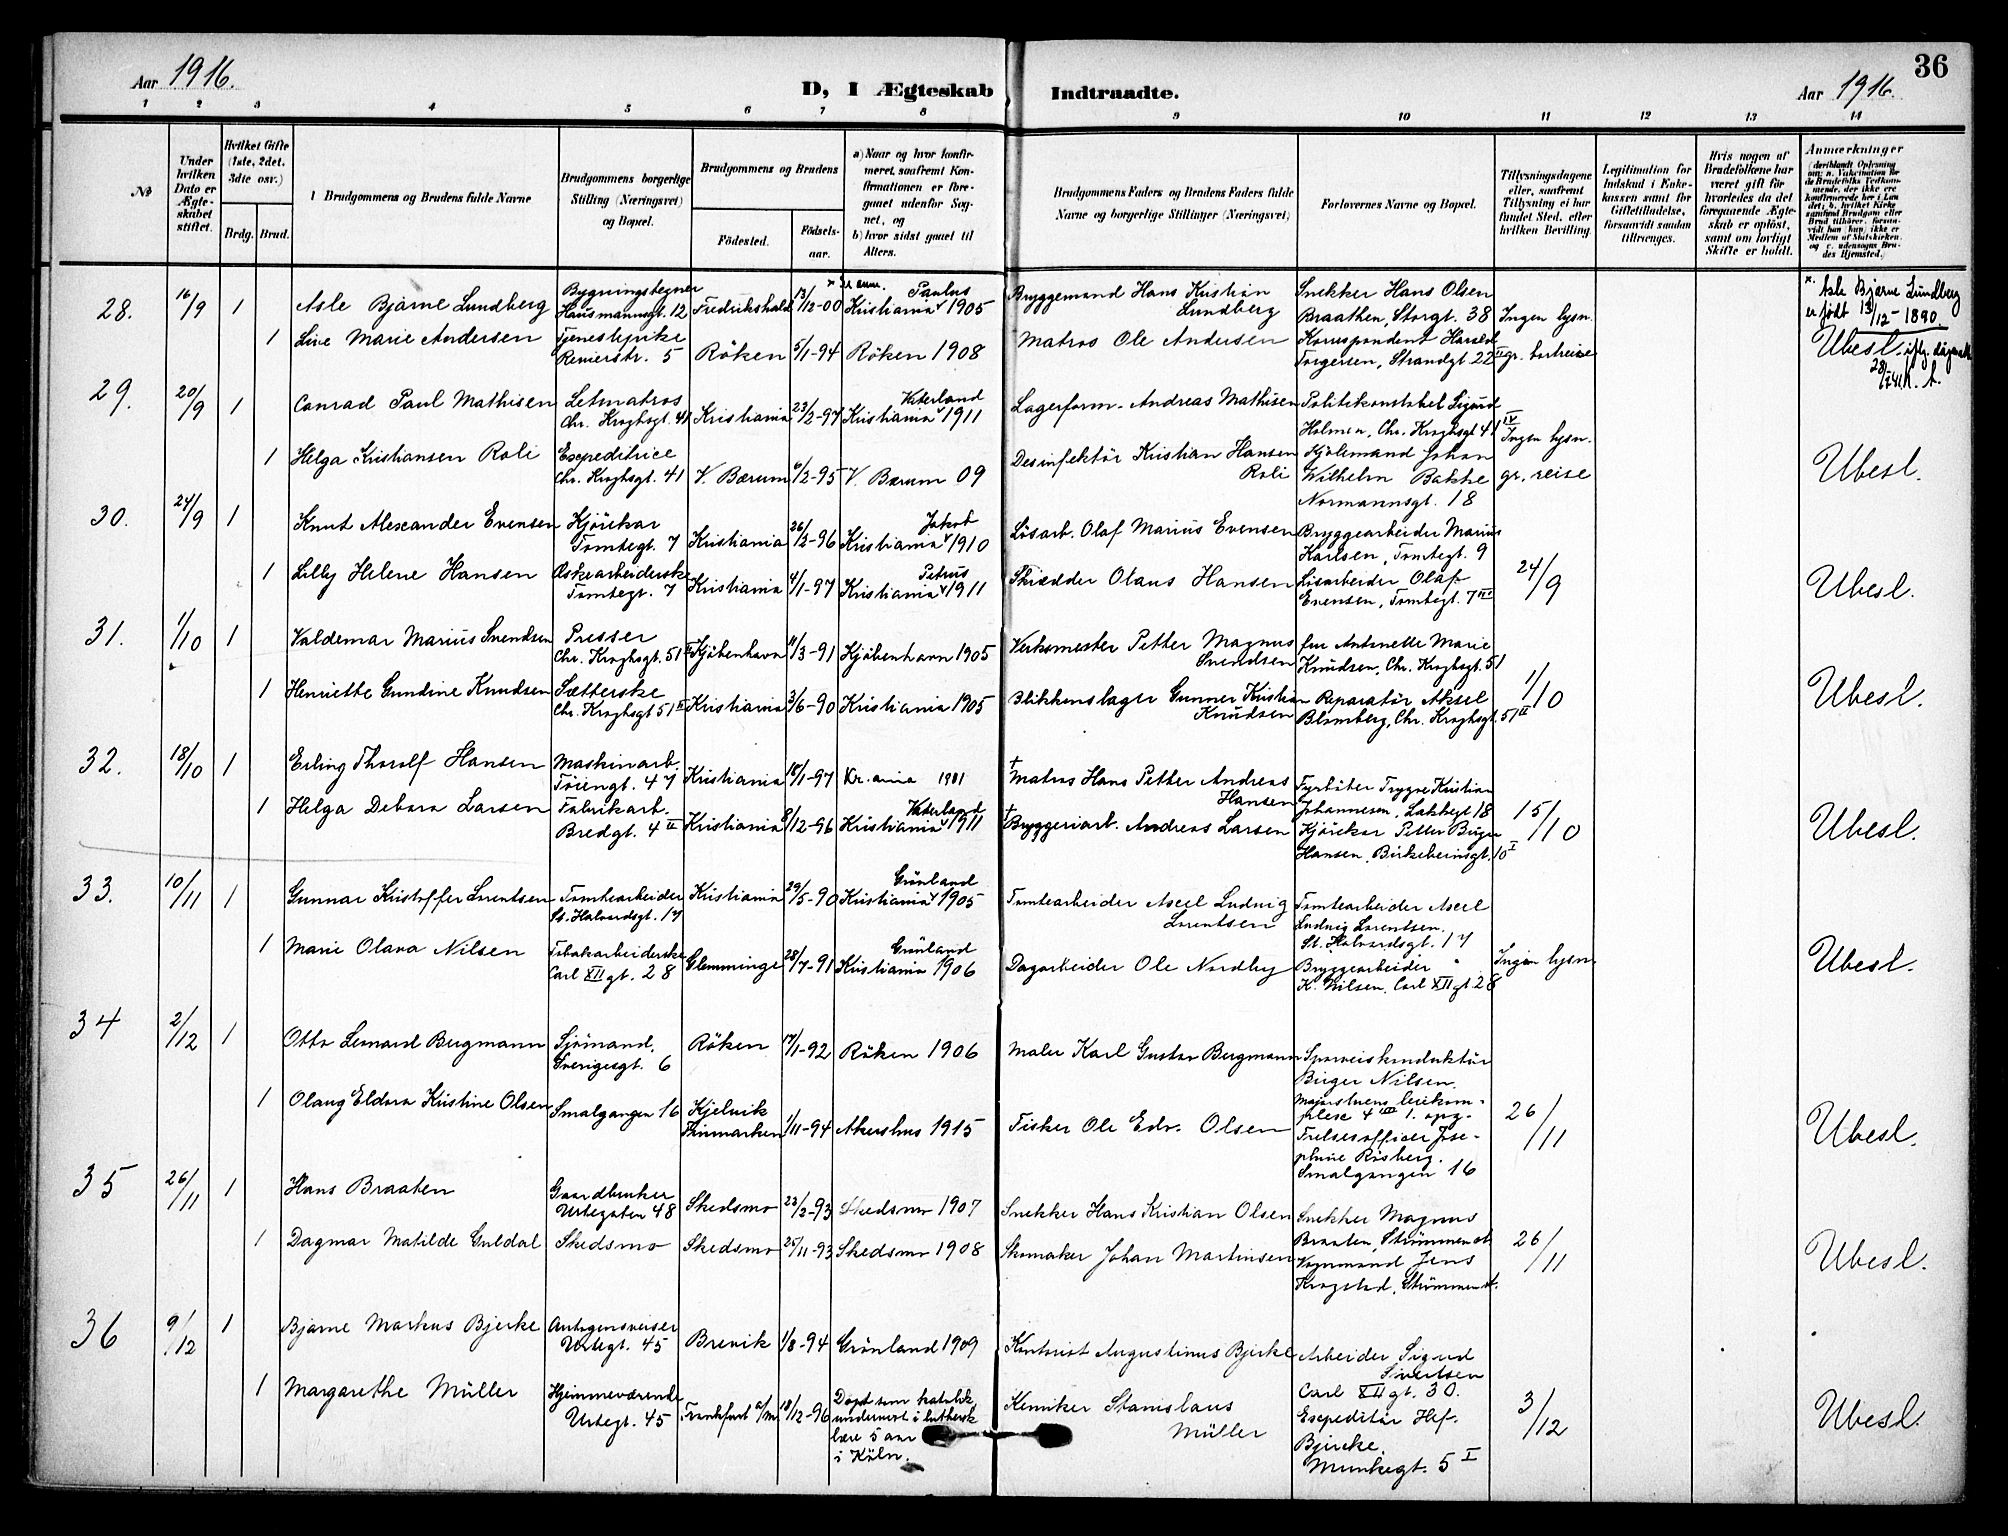 36
Aar 1916.
D, I Ægteskab Indtraadte.
Aar 1916.
1 2 3 4 5 6 7 8 9 10 11 12 13 14
№
Under hvilken Dato er Ægteskabet stiftet.
Hvilket Gifte (1ste, 2det, 3die osv.)
Brdg. Brud.
Brudgommens og Brudens fulde Navne
Brudgommens borgerlige Stilling (Næringsvei) og Bopæl.
Brudgommens og Brudens
Fødested. Fødselsaar.
a) Naar og hvor konfirmeret, saafremt Konfirmationen er foregaaet udenfor Sognet, og
b) hvor sidst gaaet til Alters.
Brudgommens Faders og Brudens Faders fulde Navne og borgerlige Stillinger (Næringsvei)
Forlovernes Navne og Bopæl.
Tillysningsdagene eller, saafremt Tillysning ei har fundet Sted, efter hvilken Bevilling.
Legitimation for Indskud i Enkekassen samt for Giftetilladelse, forsaavidt saadan tiltrænges.
Hvis nogen af Brudefolkene har været gift før hvorledes da det foregaaende Ægteskab er opløst, samt om lovligt Skifte er holdt.
Anmærkninger
28. 16/9 1 Asle Bjarne Lundberg Bygningstegner Hausmannsgt. 12 Fredrikshald 13/12-00 Paulus Kristiania 1905 Bryggemand Hans Kristian Lundberg Snekker Hans Olsen Braathen, Storgt. 38 Ingen lysn.
x. Asle Bjarne Lundberg er født 13/12-1890.
1 Line Marie Andersen Tjenestepike Renierstr. 5 Röken 5/1-94 Röken 1908 Matros Ole Andersen Korrespondent Harald Torgersen, Strandgt. 22 II gr. bortreise Ubesl.
29. 20/9 1 Conrad Paul Mathisen Letmatros Chr. Kroghsgt. 41 Kristiania 23/2-97 Vaterland Kristiania 1911 Lagerform. Andreas Mathisen Politikonstabel Sigurd Holmen, Chr. Kroghsgt 41 IV Ingen lysn.
1 Helga Kristiansen Roli Expeditrice Chr. Kroghsgt. 41 V. Bærum 6/2-95 V. Bærum 09 Desinfektör Kristian Hansen Roli Kjölemand Johan Wilhelm Bakke Normannsgt. 18 gr. reise Ubesl.
30. 24/9 1 Knut Alexander Evensen Kjörekar Tomtegt. 7 Kristiania 26/2-96 Jakob Kristiania 1910 Lösarb. Olaf Marius Evensen Bryggearbeider Marius Karlsen, Tomtegt. 9
1 Lilly Helene Hansen Æskearbeiderske Tomtegt. 7 Kristiania 4/1-97 Petrus Kristiania 1911 Skrædder Olaus Hansen Lösarbeider Olaf Evensen, Tomtegt. 7 24/9 Ubesl.
31. 1/10 1 Valdemar Marius Svendsen Presser Chr. Kroghsgt. 51 II Kjöbenhavn 11/3-91 Kjöbenhavn 1905 Verksmester Petter Magnus Svendsen fru Antonette Marie Knudsen, Chr. Kroghsgt. 51
1 Henriette Gundine Knudsen Sætterske Chr. Kroghsgt 51 II Kristiania 3/6-90 Kristiania 1905 Blikkenslager Gunner Kristian Knudsen Reparatör Aksel Blomberg, Chr. Kroghsgt. 51 II 1/10 Ubesl.
32. 18/10 1 Erling Thorolf Hansen Maskinarb. Töiengt. 47 Kristiania 18/1-97 Kr.ania 1911 † Matros Hans Petter Andreas Hansen Fyrböter Trygve Kristian Johannesen, Lakkegt 18
1 Helga Debora Larsen Fabrikarb. Bredgt. 4 II Kristiania 8/12-96 Vaterland Kristiania 1911 † Bryggeriarb. Andreas Larsen Kjörekar Petter Birger Hansen, Birkebeinsgt. 10 I 15/10 Ubesl.
33. 10/11 1 Gunnar Kristoffer Lorentsen Tomtearbeider St. Halvardsgt. 17 Kristiania 29/5-90 Grönland Kristiania 1905 Tomtearbeider Axel Ludvig Lorentsen Tomtearbeider Axel Ludvig Lorentsen. St. Halvardsgt. 17
1 Marie Olava Nilsen Tobakarbeiderske Carl XII gt. 28 Glemminge 28/7-91 Grönland Kristiania 1906 Dagarbeider Ole Nordby Bryggearbeider K. Nilsen, Carl XII gt 28 Ingen lysn. Ubesl.
34 2/12 1 Otto Leonard Bergmann Sjömand, Sverigesgt. 6 Röken 17/1-92 Röken 1906 Maler Karl Gustav Bergmann Sporveiskonduktör Birger Nilsen. Majorstuens leiekomplex 4 1. opg.
1 Olaug Eldora Kristine Olsen Smalgangen 16 Kjelvik Finmarken 1/11-94 Akershus 1915 Fisker Ole Edv. Olsen Frelsesofficer Josephine Risberg. Smalgangen 16 26/11 Ubesl.
35 26/11 1 Hans Braaten Gaardbruker Urtegaten 48 Skedsmo 23/2-93 Skedsmo 1907 Snekker Hans Kristian Olsen Snekker Magnus Braaten, Strömmen st.
1 Dagmar Matilde Guldal Skedsmo Skedsmo 25/11-93 Skedsmo 1908 Skomaker Johan Martinsen Vognmand Jens Krogstad, Strömmen st. 26/11 Ubesl.
36 9/12 1 Bjarne Markus Bjerke Urtegt. 45 Brevik 1/8-94 Grönland 1909 Kontorist Augustinus Bjerke Arbeider Sigurd Sivertsen Carl XII gt. 30.
1 Margarethe Müller Hjemmeværende Urtegt. 45 Frankfurt a/m 18/12-96 Döpt som katolik, undervist i luthersk lære 5 aar i Köln. Kemiker Stanislaus Müller Expeditör Hef. Bjercke. Munkegt. 5 I 3/12 Ubesl.